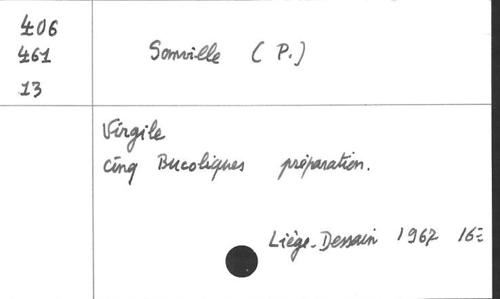 406
461
13
Somville (P.)
Virgile
cinq Bucoliques préparation.
Liège-Dessain 1967